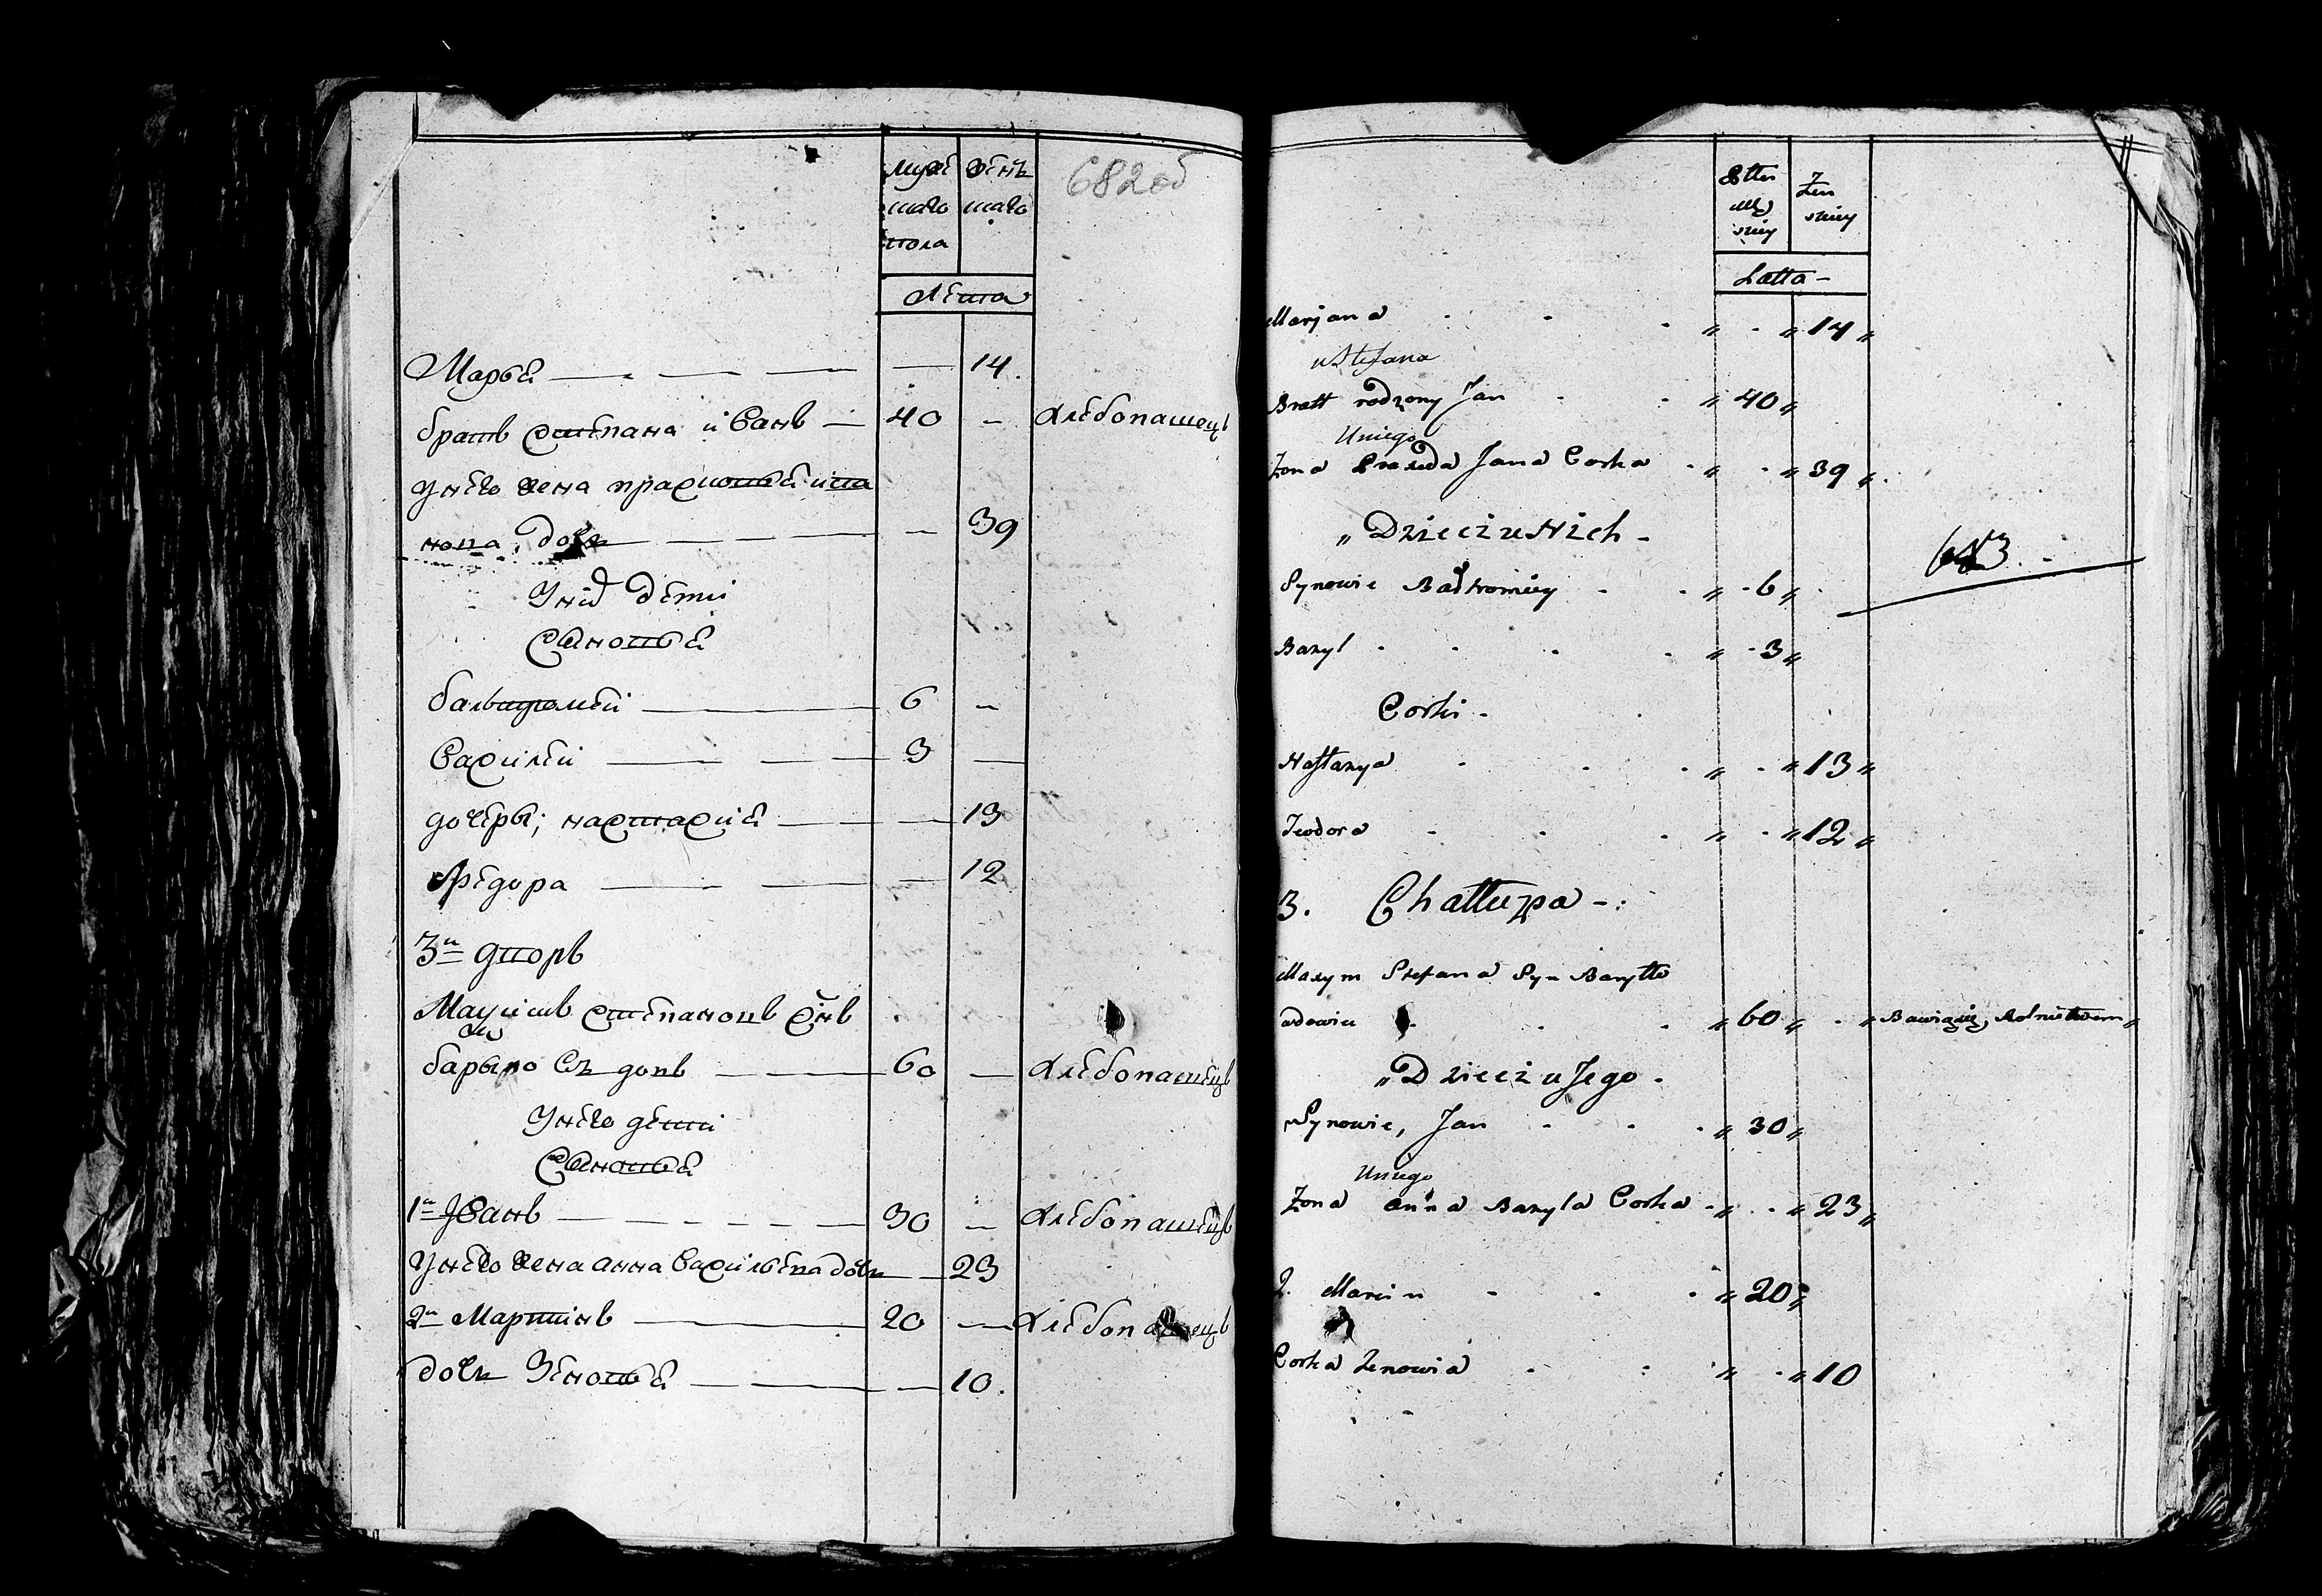 Муже Женъ
скаго скаго
пола
682об
Лета
Марья 14.
братъ степана иванъ 40 хлебопашецъ
унего жена праскошея ива
нова дочь 39
Уних Дети
Сыновья
балтромей 6
василеи 3
дочеры; настасия 13
Федора 12
3й дворъ
Максимъ степановъ снъ
барыло вдовъ 60 хлебопашецъ
Унего дети
Сыновья
1й Иванъ 30 хлебопашецъ
Унего жена анна василева дочь 23
2й Мартинъ 20 хлебопашецъ
дочь Зеновья 10.
Żen
skiey
Latta
Marjana 14
u Stefana
Bratt rodzony Jan 40
Uniego
Żona Praxeda Jana Corka 39
Dzieci u Nich
643.
Synowie Bałtromiey 6
Bazyl 3
Corki
Nastazya 13
Teodora 12
3. Chattupa
Maxym Stefana Syn Barytto
adowiec 60 Bawiący się Rolnictwem
Dzieci u Jego
Synowie, Jan 30
Uniego
Żona anna Bazyla Corka 23
2. Marcin 20
Corka Zenowia 10